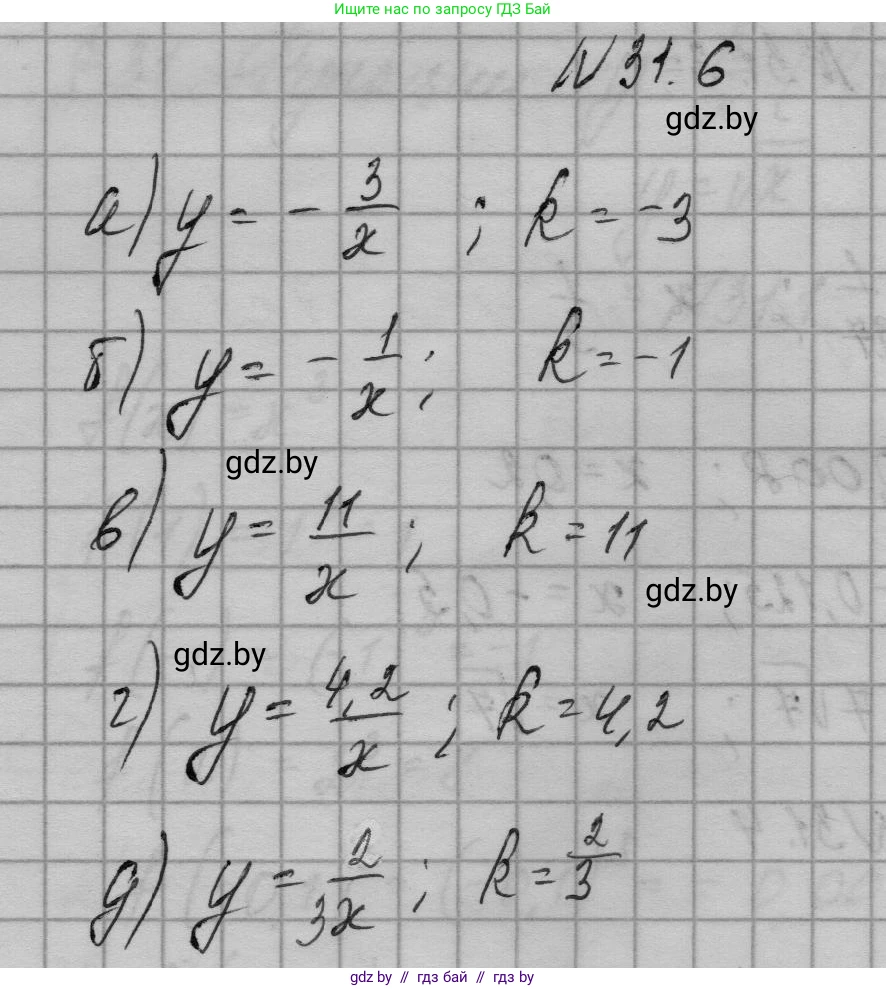 Ищите нас по запросу ГДЗ Бай
N 31. 6
gdz.by
а) y = - 3/x ; k = -3
б) y = - 1/x ; k = -1
gdz.by
в) y = 11/x ; k = 11
gdz.by
gdz.by
г) y = 4,2/x ; k = 4,2
д) y = 2/3x ; k = 2/3
gdz by // гдз бай // gdz by